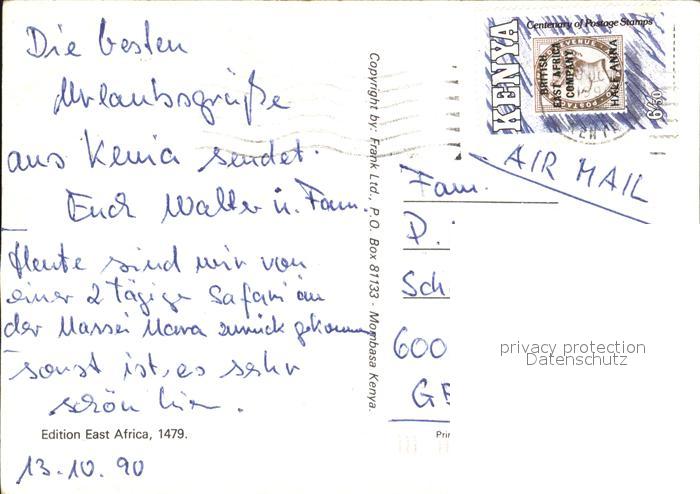 Die besten
Urlaubsgrüße
aus Kenia sendet.
Euch Walter u. Fam.
Heute sind wir von
einer 2 tägige Safari an
der Massei Mara zurück gekommen
sonst ist es sehr
schön hier.
Edition East Africa, 1479.
13.10.90
Copyright by: Frank Ltd., P.O. Box 81133 - Mombasa Kenya.
KENYA
Centenary of Postage Stamps
BRITISH
EAST AFRICA
COMPANY
HALF ANNA
POSTAGE
REVENUE
AIR MAIL
Fam.
P.
Sch
600
GE
privacy protection
Datenschutz
Prin